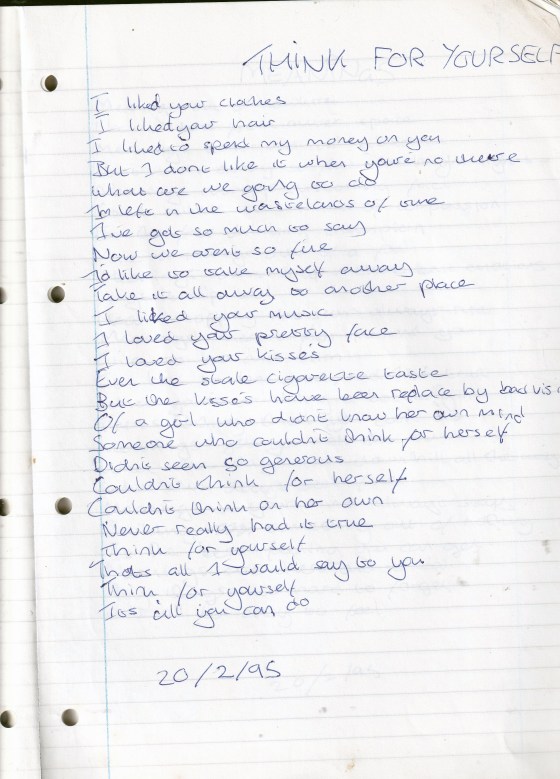 THINK FOR YOURSELF
I liked your clothes
I liked your hair
I liked to spend my money on you
But I dont like it when you're no there
What are we going to do
Im left in the wastelands of time
I've got so much to say
Now we aren't so fine
I'd like to take myself away
Take it all away to another place
I liked your music
I loved your pretty face
I loved your kisses
Even the stale cigarette taste
But the kisses have been replace by bad
Of a girl who didn't know her own mind
Someone who couldn't think for herself
Didn't seem so generous
Couldn't think for herself
Couldn't think on her own
Never really had it true
Think for yourself
Thats all I would say to you
Think for yourself
Its all you can do
20/2/95